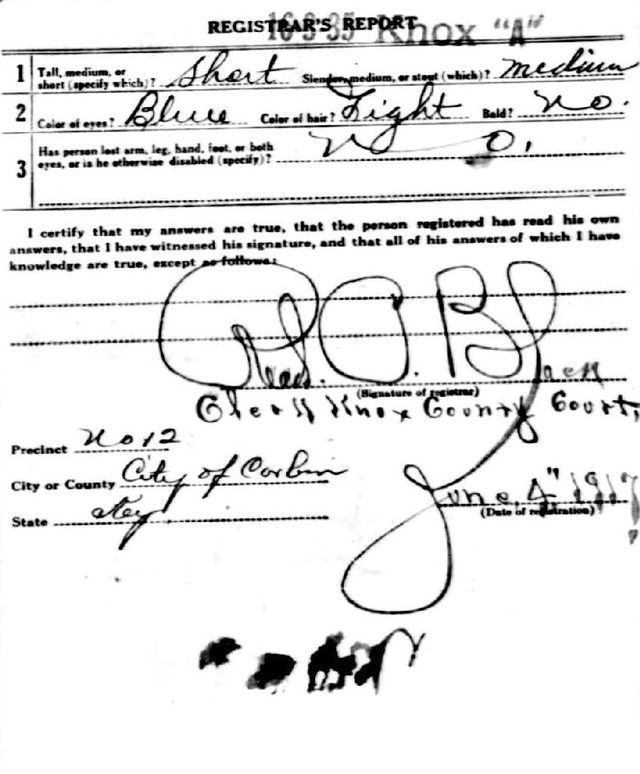 REGISTRAR'S REPORT 16-3-35 Knox "A"
1 Tall, medium, or short (specify which)? Short Slender, medium, or stout (which)? medium
2 Color of eyes? Blue Color of hair? Light Bald? No.
3 Has person lost arm, leg, hand, foot, or both eyes, or is he otherwise disabled (specify)? No.
I certify that my answers are true, that the person registered has read his own
answers, that I have witnessed his signature, and that all of his answers of which I have
knowledge are true, except as follows:
(Signature of registrar)
Clerk Knox County Court,
Precinct No 12
City or County City of Corbin
State Key
June, 4" 1917
(Date of registration)